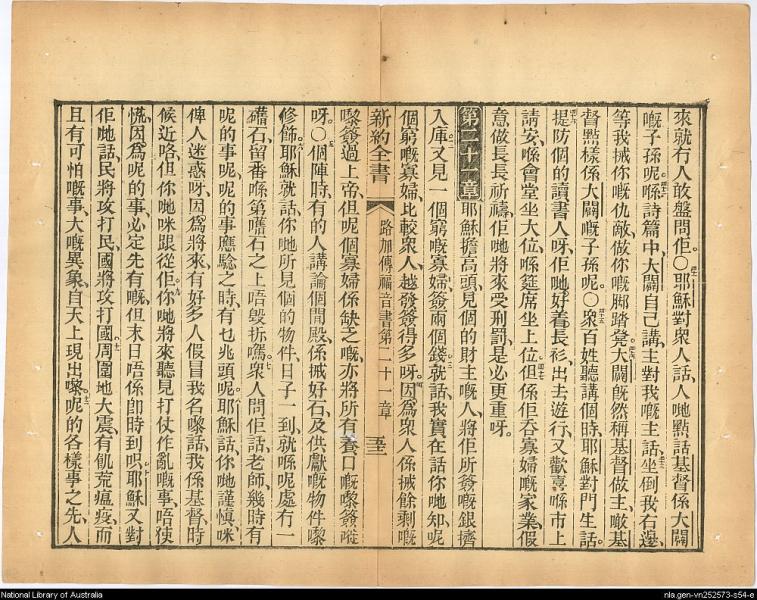 來就冇人敢盤問佢○耶穌對衆人話人哋點話基督係大闢
嘅子孫呢喺詩篇中大闢自己講主對我嘅主話坐倒我右邊
等我搣你嘅仇敵做你嘅脚踏凳大闢既然稱基督做主噉基
督點樣係大闢嘅子孫呢○衆百姓聽講個時耶穌對門生話
提防個的讀書人呀佢哋好着長衫出去遊行又歡喜喺市上
請安喺會堂坐大位喺筵席坐上位但係佢吞寡婦嘅家業假
意做長長祈禱佢哋將來受刑罰是必更重呀
第二十一章 耶穌擔高頭見個的財主嘅人將佢所簽嘅銀擠
入庫又見一個窮嘅寡婦簽兩個錢就話我實在話你哋知呢
個窮嘅寡婦比較衆人越發簽得多呀因爲衆人係搣餘剩嘅
新約全書 路加傳福音書第二十一章
嚟簽過上帝但呢個寡婦係缺乏嘅亦將所有養口嘅嚟簽嗻
呀○個陣時有的人講論個間殿係搣好石及供獻嘅物件嚟
修飾耶穌就話你哋所見個的物件日子一到就喺呢處冇一
磚石留番喺第嚿石之上唔毀拆嘅衆人問佢話老師幾時有
呢的事呢呢的事應驗之時有乜兆頭呢耶穌話你哋謹愼咪
俾人迷惑呀因爲將來有好多人假冒我名嚟話我係基督時
候近咯但你哋咪跟從佢你哋將來聽見打仗作亂嘅事唔使
慌因爲呢的事必定先有嘅但末日唔係卽時到呮耶穌又對
佢哋話民將攻打民國將攻打國周圍地大震有飢荒瘟疫而
且有可怕嘅事大嘅異象自天上現出嚟呢的各樣事之先人
National Library of Australia
nla.gen-vn252573-s54-e